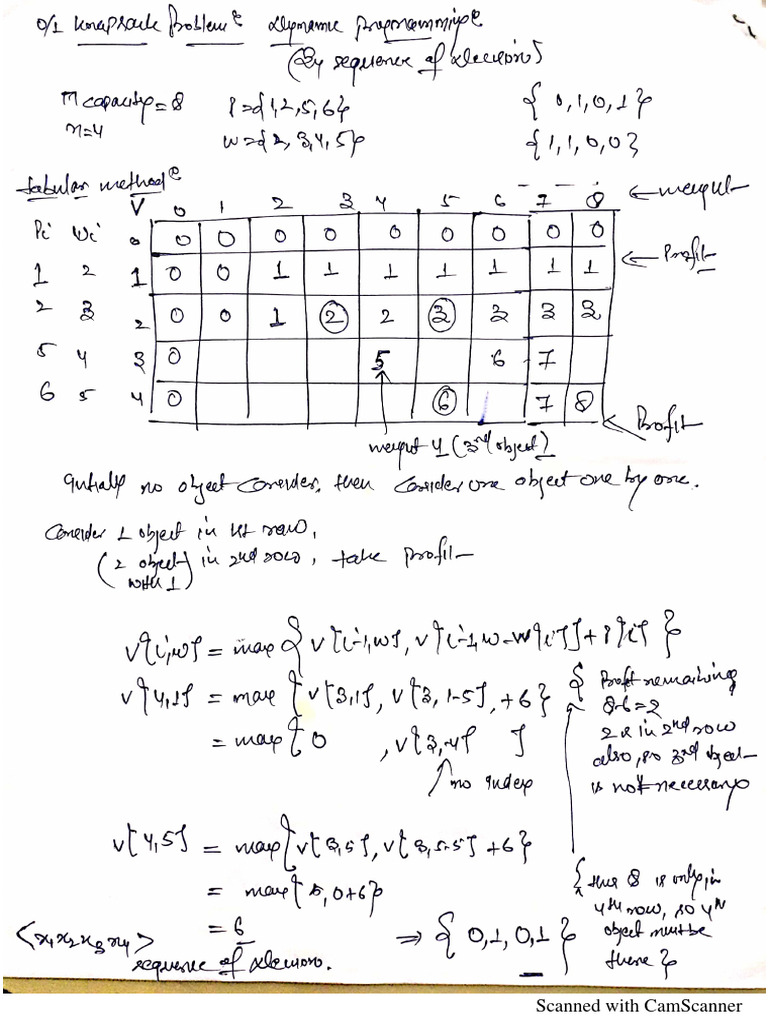 0/1 Knapsack Problem: Dynamic Programming:
(By sequence of decisions)
m capacity = 8 P = {1,2,5,6} { 0,1,0,1 }
n=4 w = {2,3,4,5} {1,1,0,0}
tabular method:
V 0 1 2 3 4 5 6 7 8 ← weight
Pi wi 0 0 0 0 0 0 0 0 0 0
1 2 1 0 0 1 1 1 1 1 1 1 ← Profit
2 3 2 0 0 1 2 2 3 3 3 3
5 4 3 0 5 6 7
6 5 4 0 6 7 8
← Profit
weight 4 (3rd object)
Initially no object consider, then consider one object one by one.
Consider 1 object in 1st row,
(2 object with 1) in 2nd row, take profit
V[i,w] = max { V[i-1,w], V[i-1, w-w[i]] + P[i] }
V[4,1] = max { V[3,1], V[3, 1-5], +6 }
= max { 0 , V[3,-4] }
no index
{ Profit remaining
8-6=2
2 is in 2nd row
also, so 3rd object
is not necessary
V[4,5] = max { V[3,5], V[3, 5-5] + 6 }
= max { 5, 0+6 }
= 6
{ this 8 is only in
4th row, so 4th
object must be
there }
<x1 x2 x3 x4> ⇒ { 0,1,0,1 }
sequence of decision.
Scanned with CamScanner